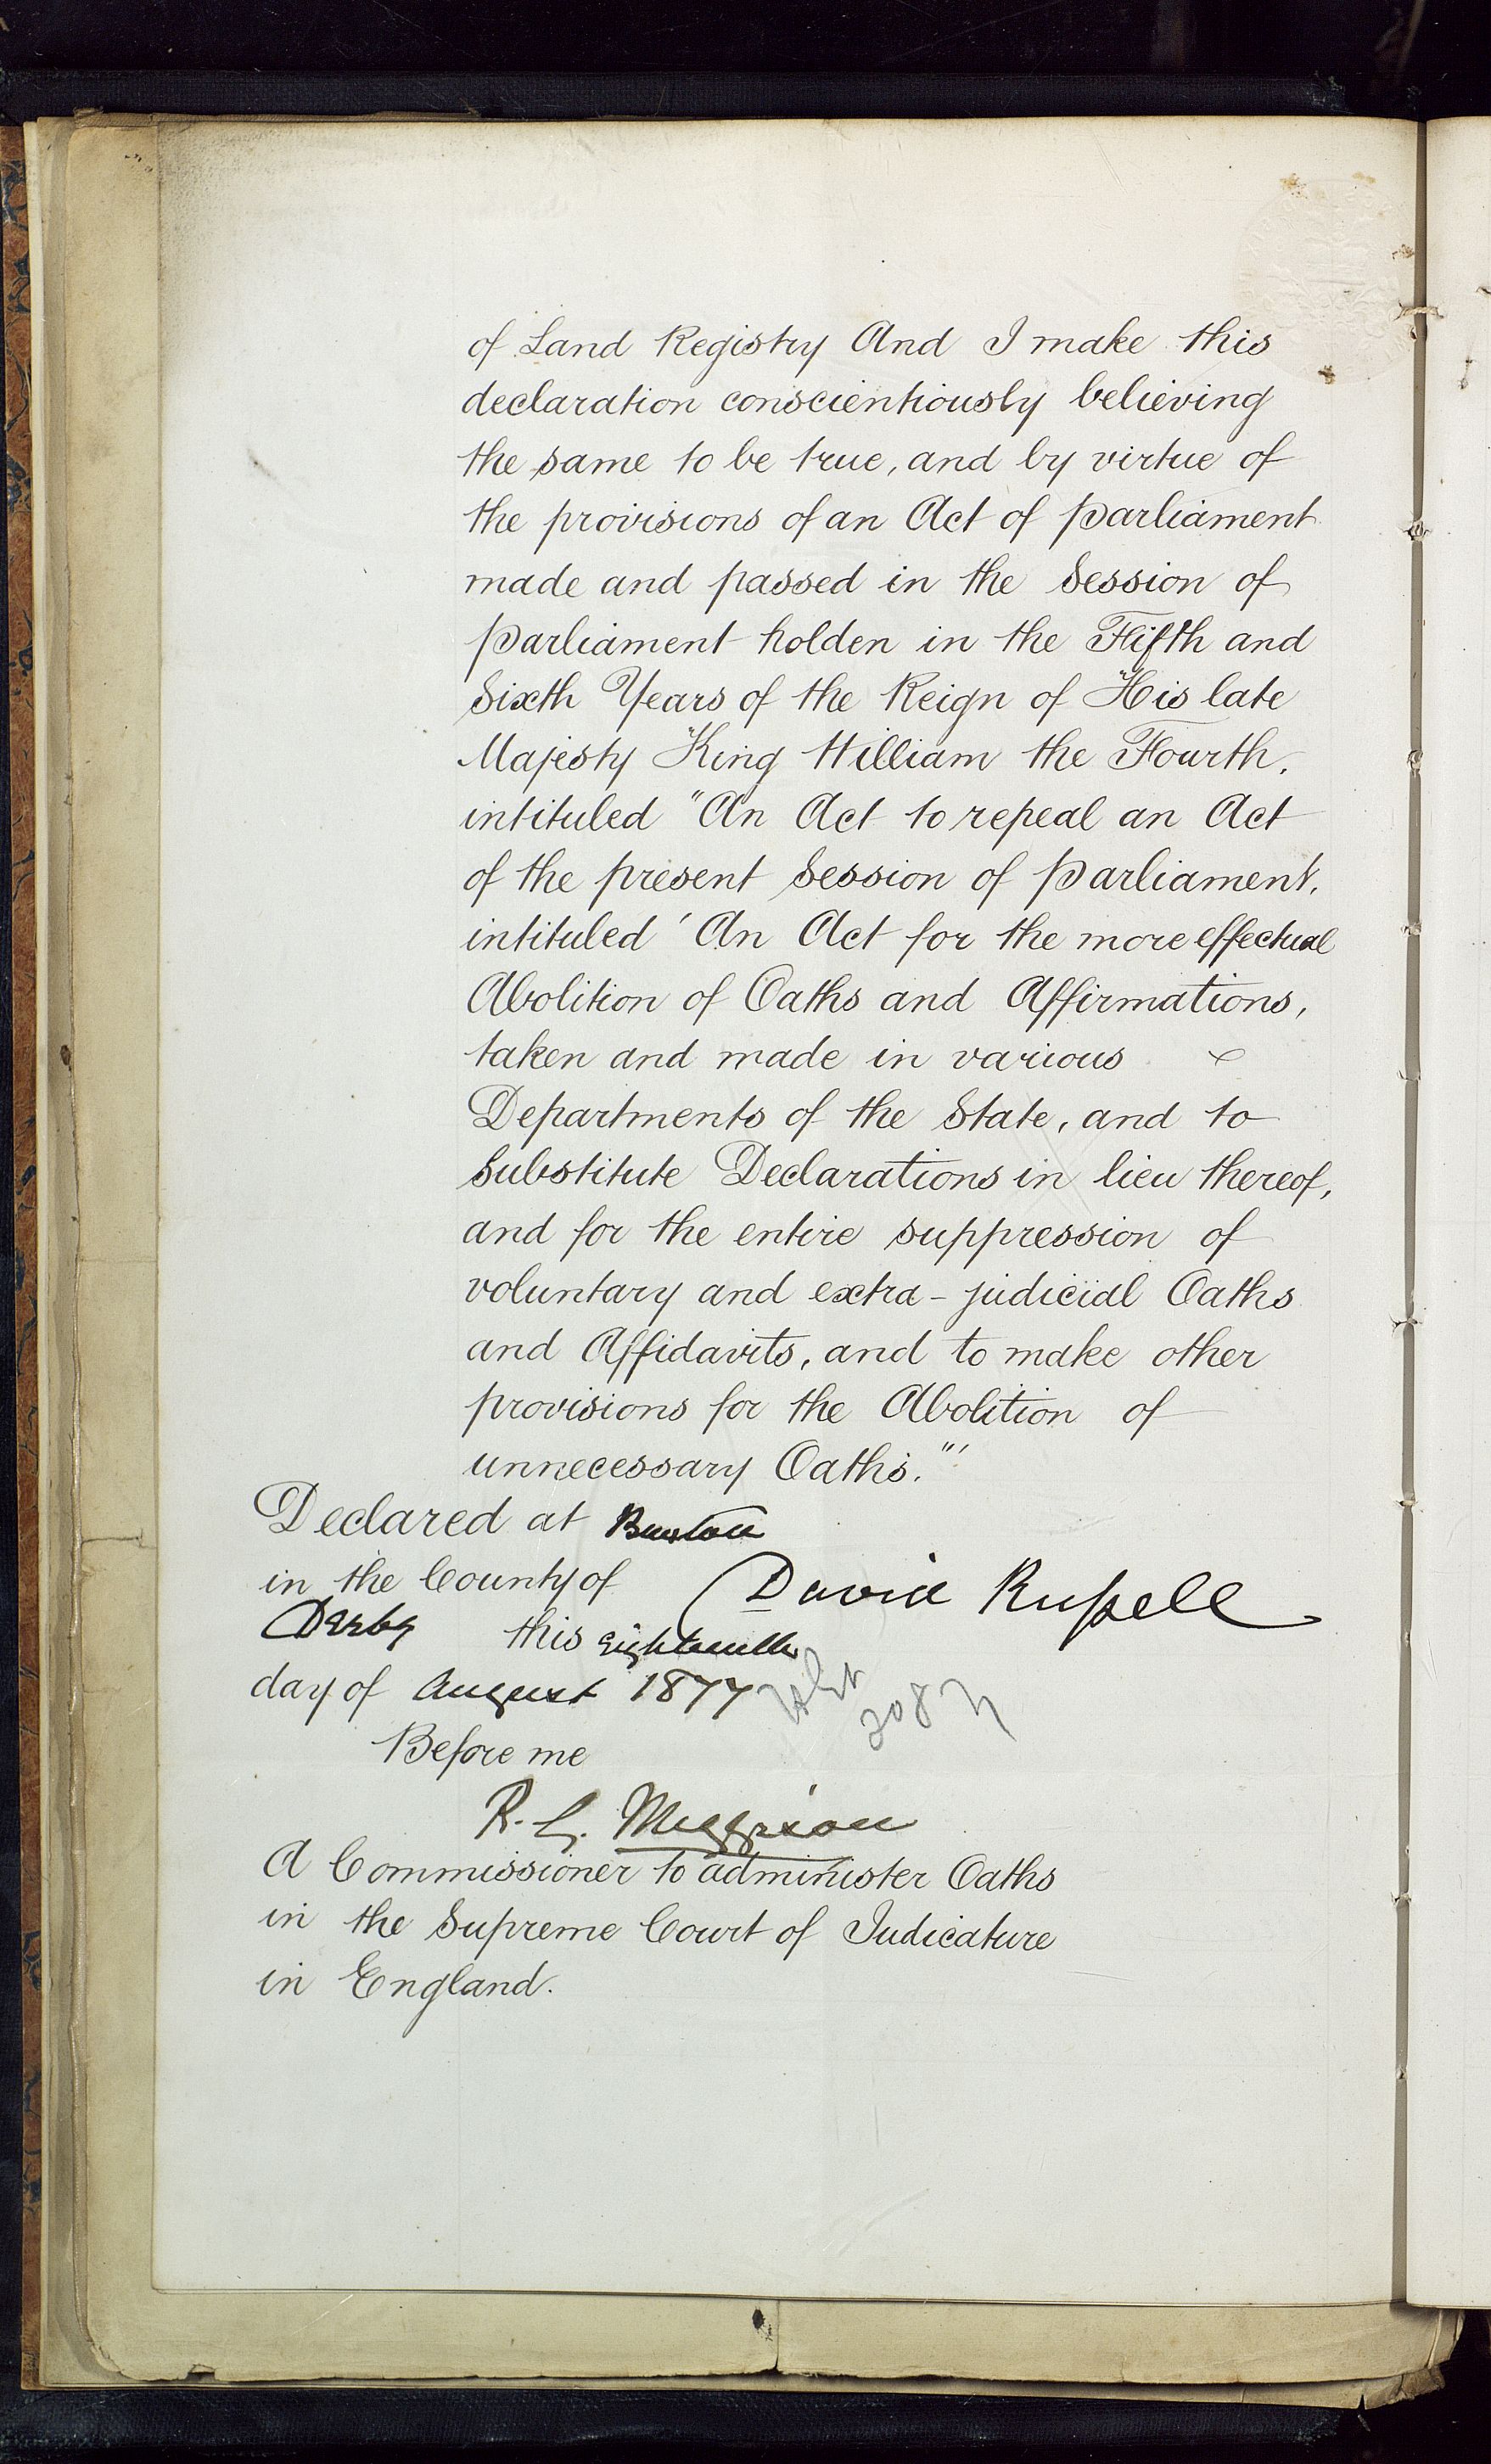 of Land Registry And I make this
declaration conscientiously believing
the same to be true, and by virtue of
the provisions of an Act of Parliament
made and passed in the Session of
Parliament holden in the Fifth and
Sixth Years of the Reign of His late
Majesty King William the Fourth,
intituled "An Act to repeal an Act
of the present Session of Parliament,
intituled 'An Act for the more effectual
Abolition of Oaths and Affirmations,
taken and made in various
Departments of the State, and to
Substitute Declarations in lieu thereof,
and for the entire suppression of
voluntary and extra-judicial Oaths
and Affidavits, and to make other
provisions for the Abolition of
unnecessary Oaths."'
Declared at Buxton
in the County of
David Russell
Derby this Eighteenth
day of August 1877
Before me
R. G.
A Commissioner to administer Oaths
in the Supreme Court of Judicature
in England.